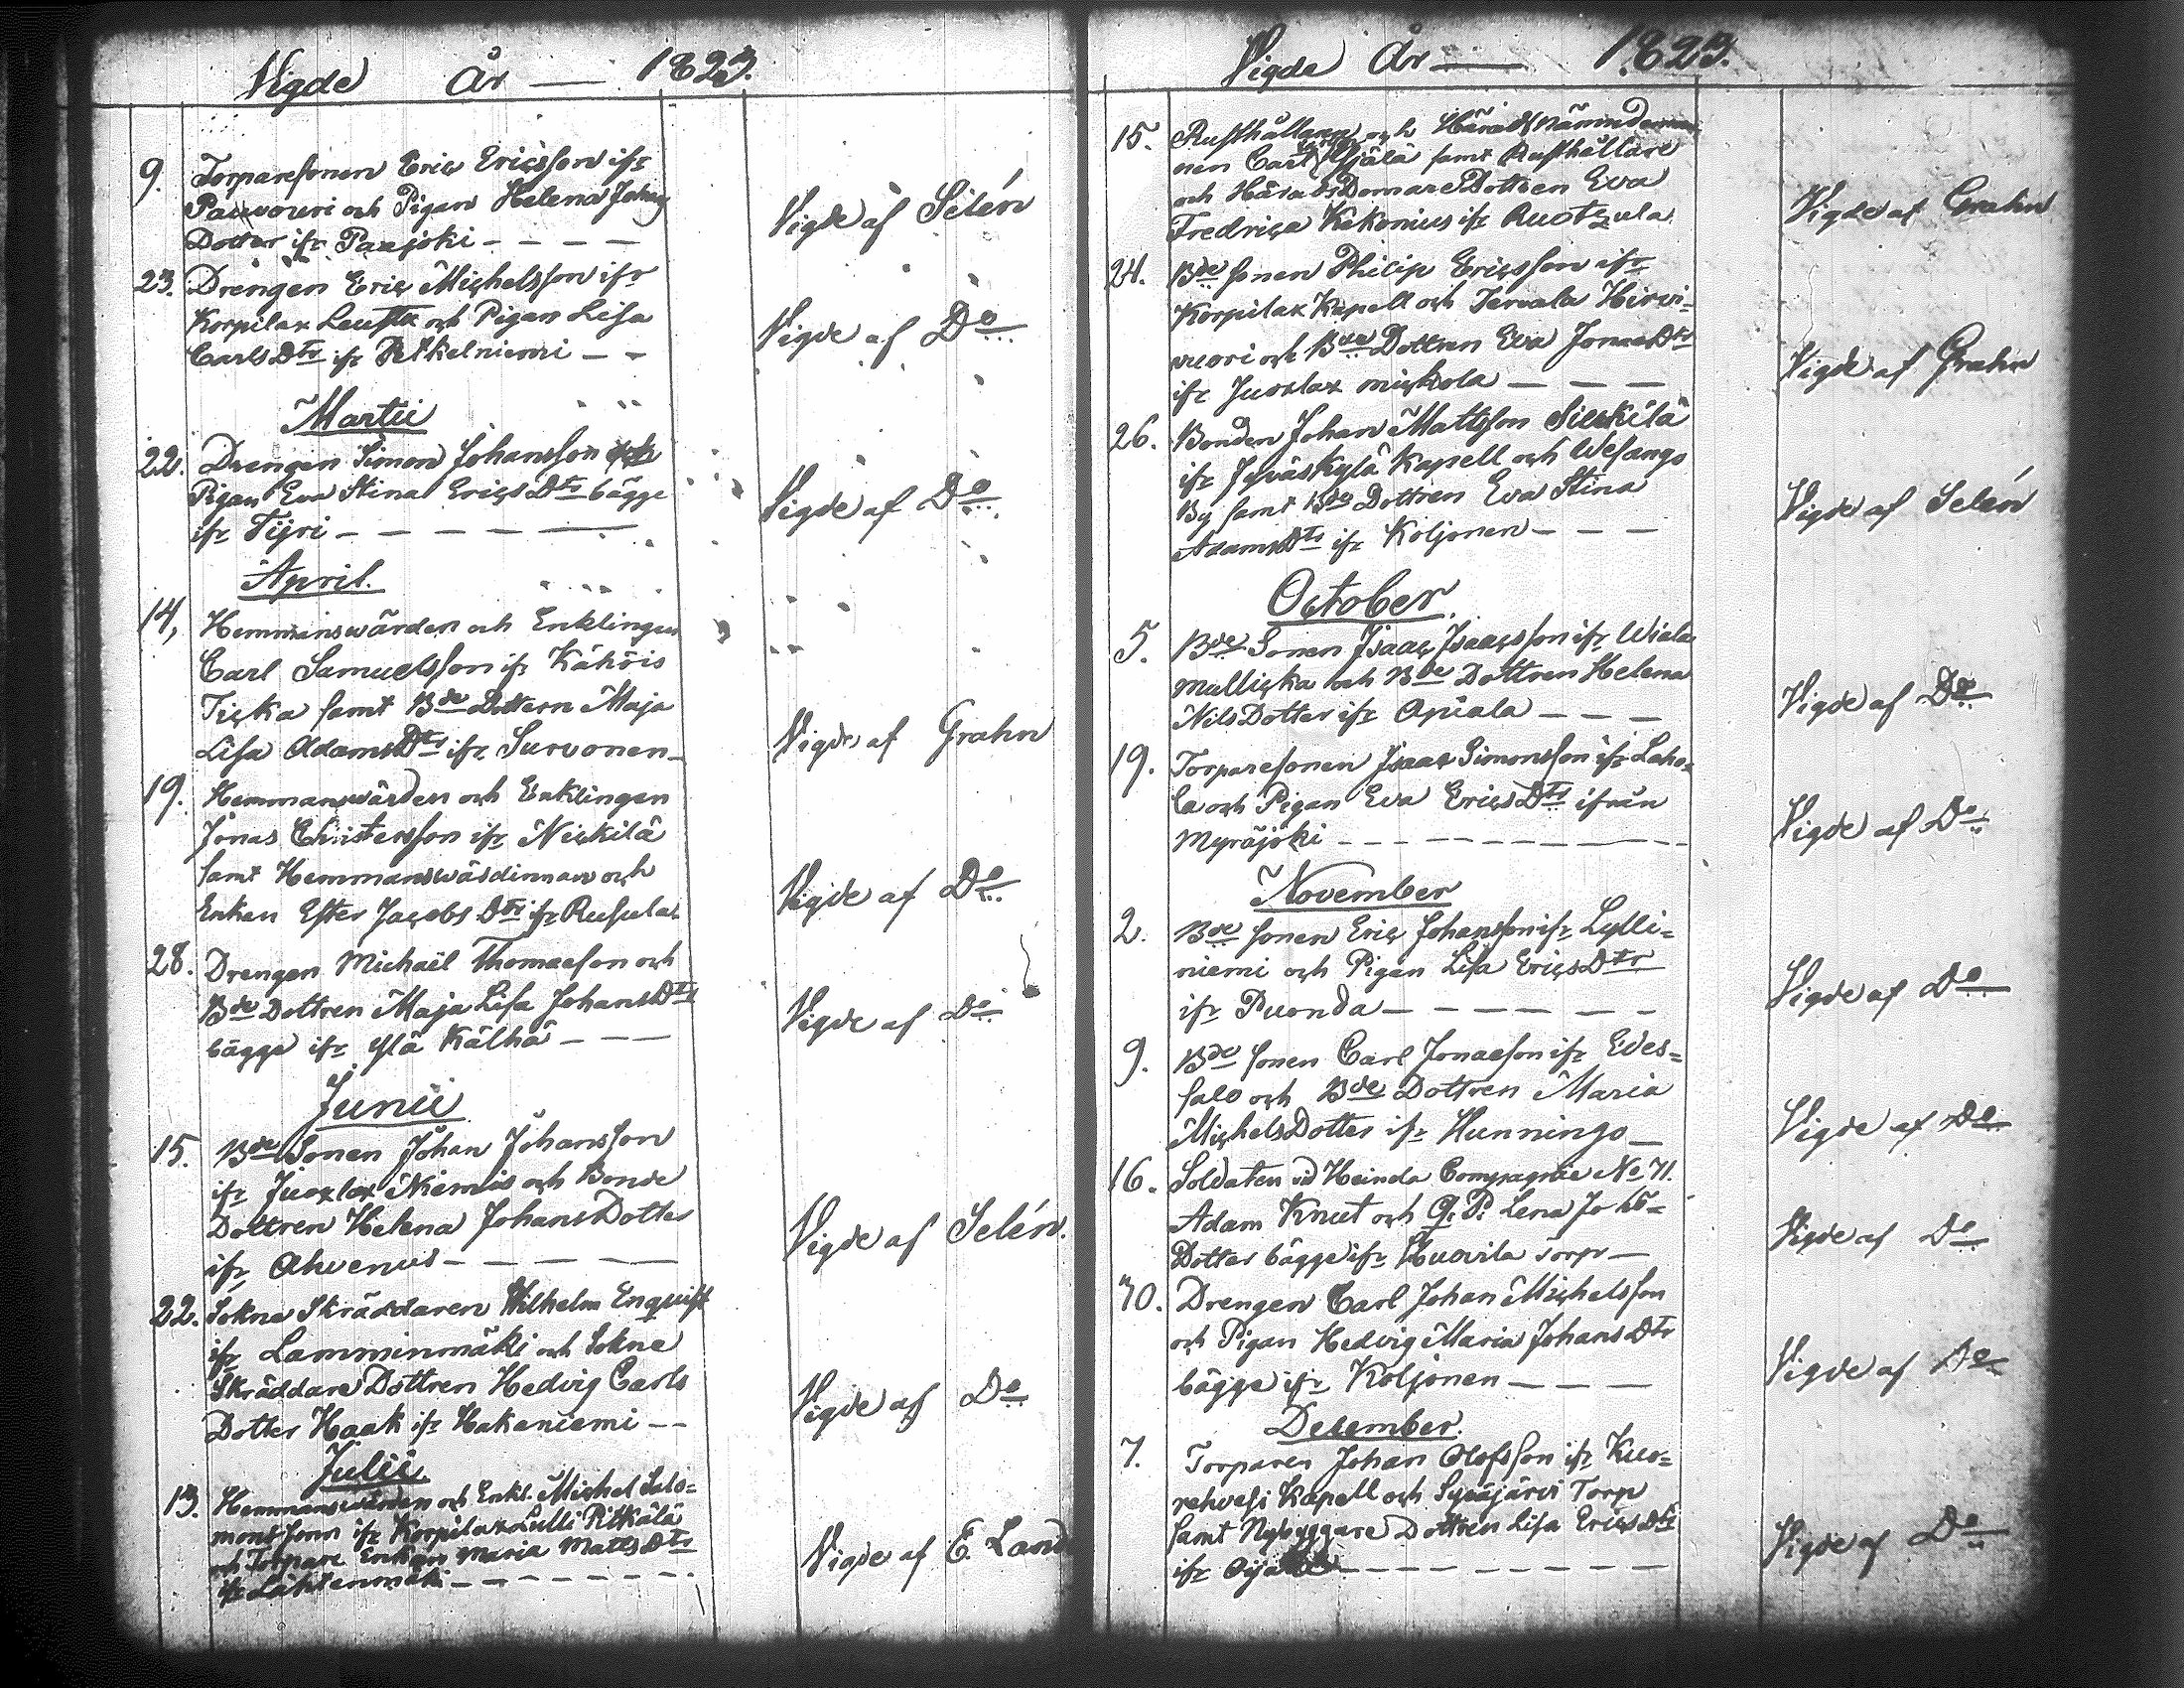 Vigde År — 1823.
9. Torparesonen Eric Ericsson ifr
Pauvouri och Pigan Helena Johans
Dotter ifr Paxjoki - - - -
Vigde af Selén
23. Drengen Eric Michelsson ifr
Korpilax Leustu och Pigan Lisa
Carls Dtr ifr Petkelniemi - -
Vigde af Do
Martii
22. Drengen Simon Johansson och
Pigan Eva Stina Erics Dtr bägge
ifr Tyri - - - -
Vigde af Do
April.
14, Hemmanswärden och Enklingen
Carl Samuelsson ifr Kähöis
Ticka samt Bde Dottern Maja
Lisa Adams Dtr ifr Survonen -
Vigde af Grahn
19. Hemmanswärden och Enklingen
Jonas Christersson ifr Nickilä
samt Hemmanswärdinnan och
Enkan Ester Jacobs Dtr ifr Rusula
Vigde af Do
28. Drengen Michaël Thomasson och
Bde Dottren Maja Lisa Johans Dtr
bägge ifr Ylä Kälhä - - -
Vigde af Do
Junii
15. Bde Sonen Johan Johansson
ifr Juoxlax Niemis och Bonde
Dottren Helena Johans Dotter
ifr Ahvenus - - - -
Vigde af Selén.
22. Sokne Skräddaren Wilhelm Enqvist
ifr Lamminmäki och Sokne
Skräddare Dottren Hedvig Carls
Dotter Haak ifr Hakaniemi - -
Vigde af Do
Julii.
13. Hemmanswärden och Enkl. Michel Salo=
monsson ifr Korpilax Lulli Pitkälä
och Torpare Enkan Maria Matts Dtr
ifr Lähtenmäki - - - -
Vigde af E. Land
Vigde År — 1823.
15. Rusthållaren och Häradsnämndeman
nen Carl Yjälä samt Rusthållare
och Härads Domare Dottren Eva
Fredrica Kekonius ifr Ruotzula
Vigde af Grahn
24. Bde sonen Philip Ericsson ifr
Korpilax Kapell och Servala Hirvi=
vuori och Bde Dottren Eva Jonas Dtr
ifr Juoxlax mickola - - -
Vigde af Grahn
26. Bonden Johan Mattsson Sieckilä
ifr Jyväskylä Kapell och Wesango
By samt Bde Dottren Eva Stina
Adams Dtr ifr Koljonen - - -
Vigde af Selén
October.
5. Bde Sonen Isaac Isaacsson ifr Wiala
mullicka och Bde Dottren Helena
Nils Dotter ifr Apiala - - -
Vigde af Do
19. Torparesonen Isaac Simonsson ifr Laho=
la och Pigan Eva Erics Dtr ifrån
Myräjoki - - - -
Vigde af Do
November
2. Bde sonen Eric Johansson ifr Lylli=
niemi och Pigan Lisa Erics Dtr
ifr Puonda - - - -
Vigde af Do
9. Bde sonen Carl Jonasson ifr Edes=
salo och Bde Dottren Maria
Michels Dotter ifr Hunningo -
Vigde af Do
16. Soldaten vid Heinola Compagnie No 71.
Adam Knut och Q. P. Lena Joh=
Dotter bägge ifr Huovila Torp -
Vigde af Do
30. Drengen Carl Johan Michelsson
och Pigan Hedvig Maria Johans Dtr
bägge ifr Koljonen - - -
Vigde af Do
December.
7. Torparen Johan Olofsson ifr Kuo=
rehvesi Kapell och Syväjärvi Torp
samt Nybyggare Dottren Lisa Erics Dtr
ifr - - - -
Vigde af Do